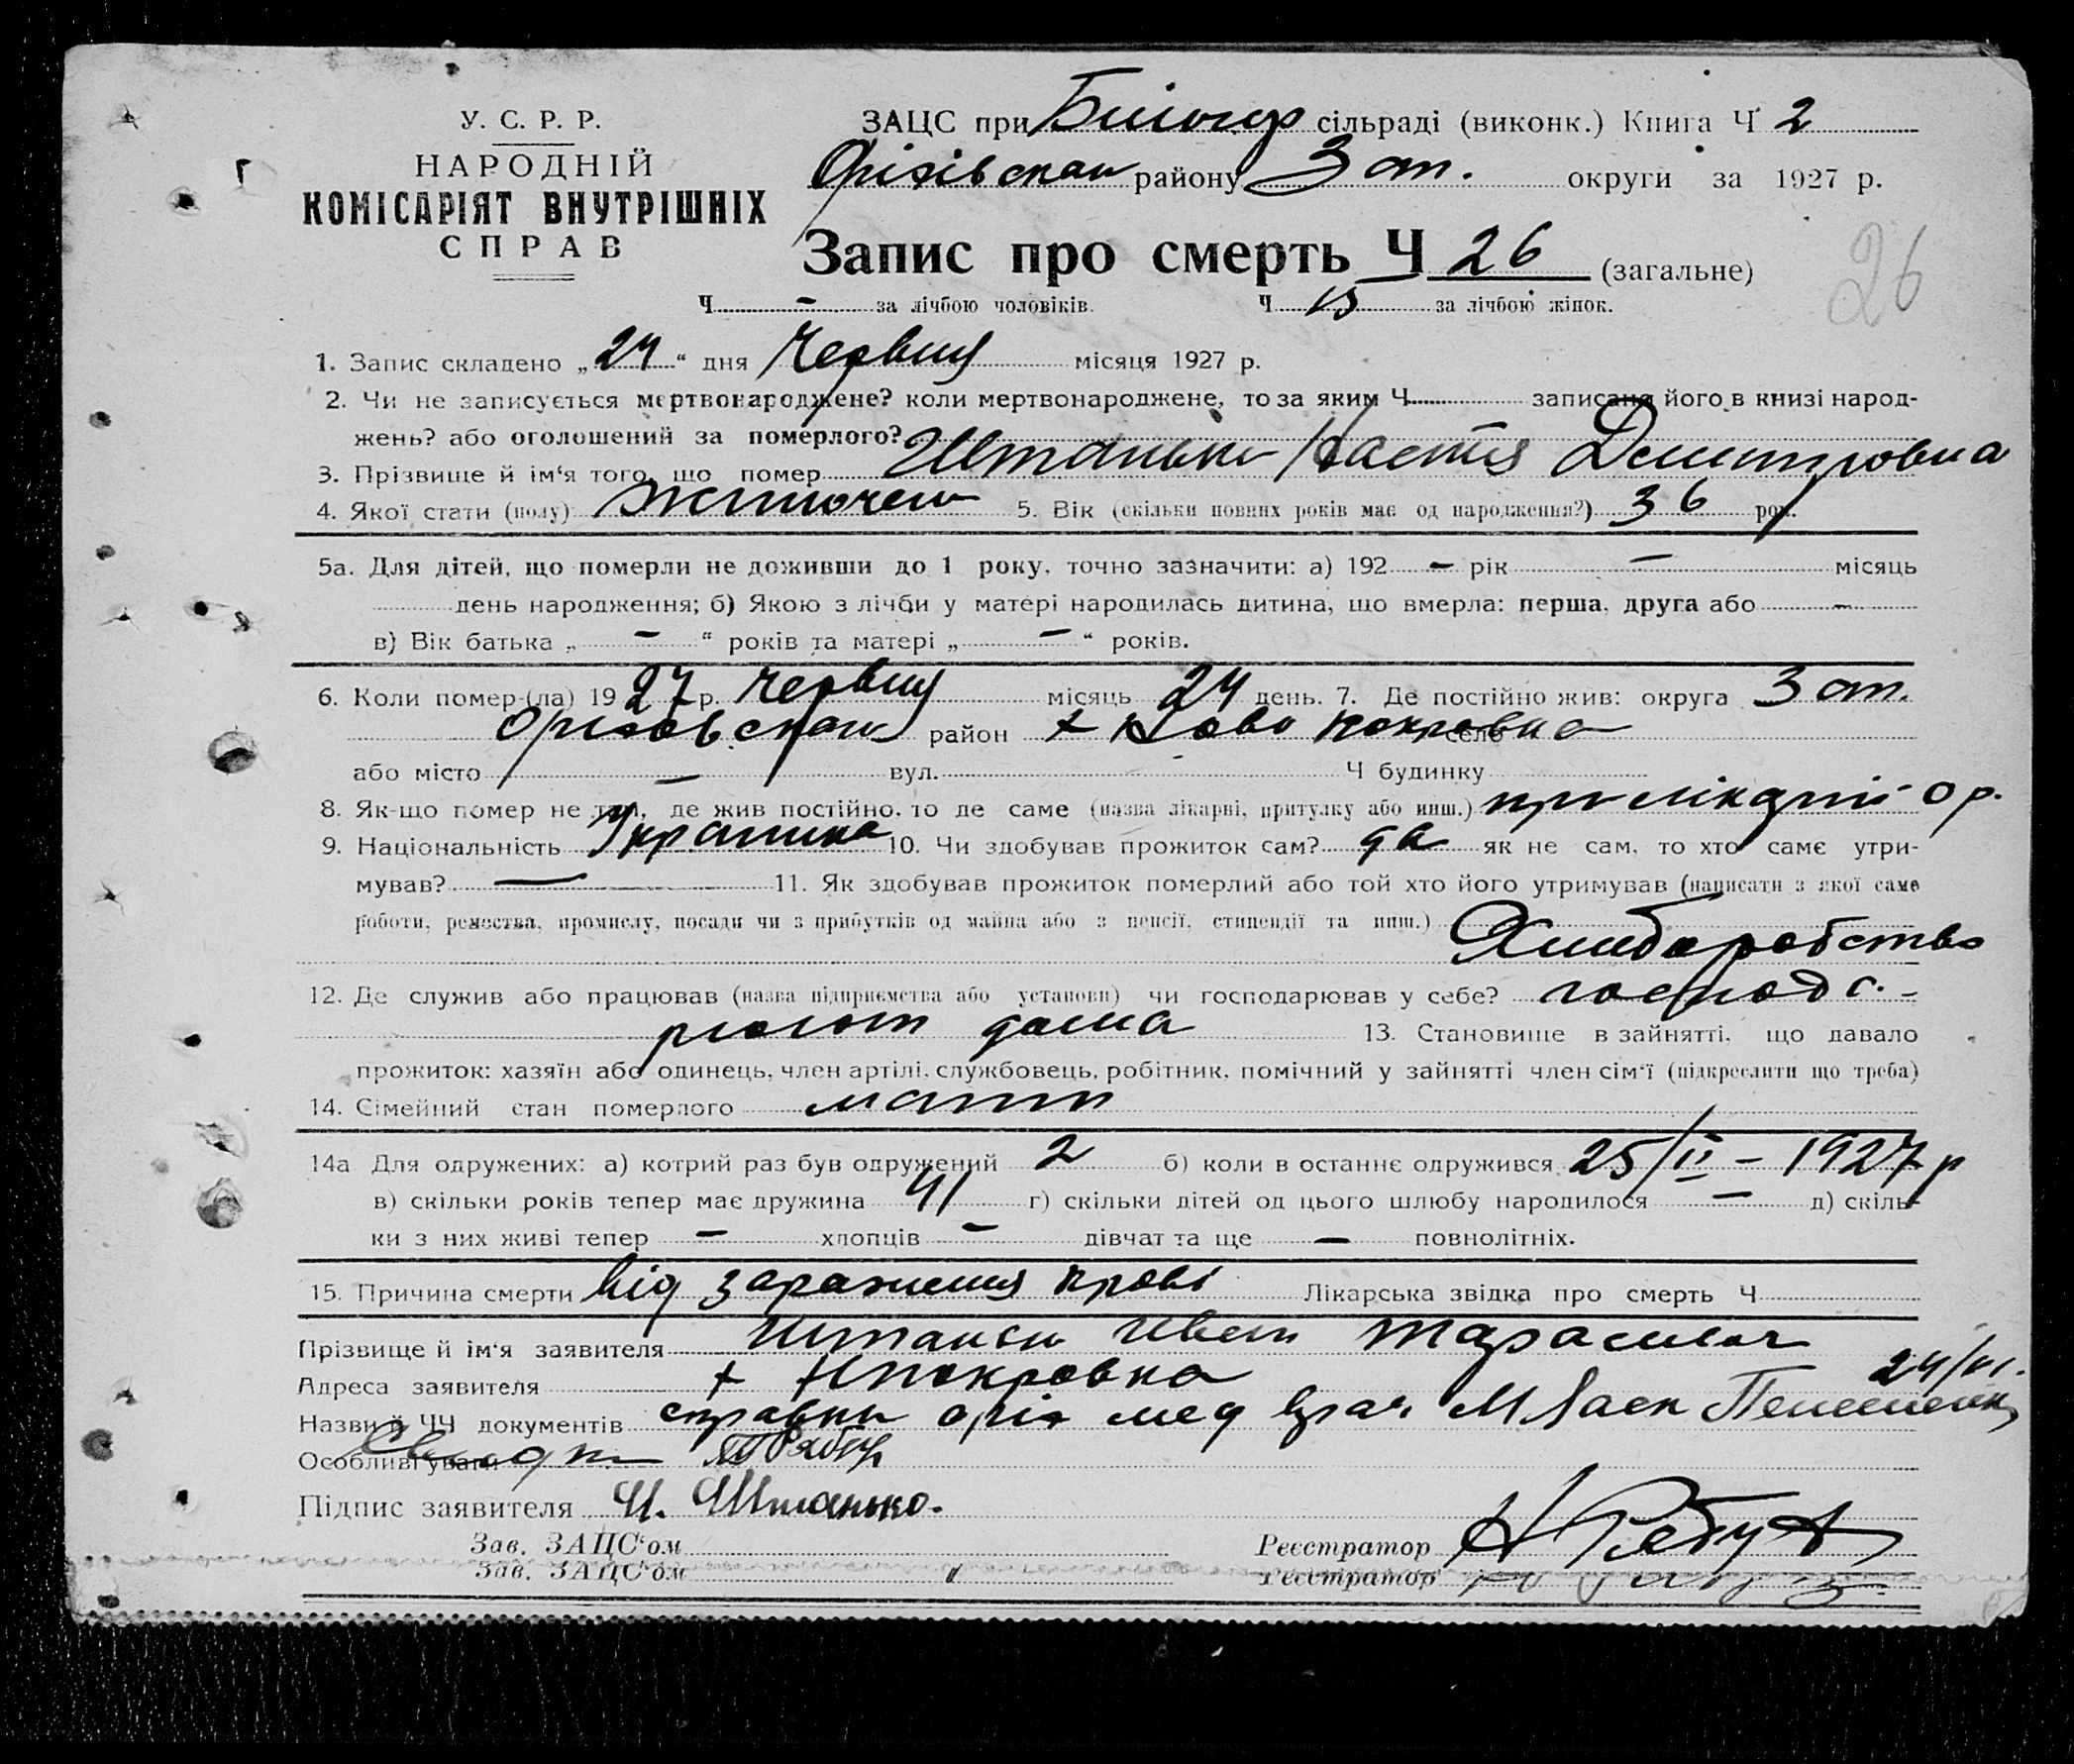 У. С. Р. Р.
НАРОДНІЙ
КОМІСАРІЯТ ВНУТРІШНІХ
СПРАВ
ЗАЦС при Білогір сільраді (виконк.) Книга Ч 2
Оріхівськ району Зап. округи за 1927 р.
Запис про смерть Ч 26 (загальне)
26
Ч - за лічбою чоловіків. Ч 13 за лічбою жінок.
1. Запис складено „24“ дня Червня місяця 1927 р.
2. Чи не записується мертвонароджене? коли мертвонароджене, то за яким Ч записано його в книзі народ-
жень? або оголошений за померлого?
3. Прізвище й ім'я того, що помер Штанько Настя Дмитровна
4. Якої стати (полу) жіночеи 5. Вік (скільки повних років має од народження?) 36 рок.
5а. Для дітей, що померли не доживши до 1 року, точно зазначити: а) 192 - рік - місяць
день народження; б) Якою з лічби у матері народилась дитина, що вмерла: перша, друга або -
в) Вік батька „ - “ років та матері „ - “ років.
6. Коли помер-(ла) 1927 р. Червня місяць 24 день. 7. Де постійно жив: округа Зап.
район х Ново Покровка село
або місто - вул. Ч будинку
8. Як-що помер не там, де жив постійно, то де саме (назва лікарні, притулку або инш.) при лікарні Ор.
9. Національність Украинка 10. Чи здобував прожиток сам? да як не сам, то хто саме утри-
мував? — 11. Як здобував прожиток померлий або той хто його утримував (написати з якої саме
роботи, ремества, промислу, посади чи з прибутків од майна або з пенсії, стипендії та инш.)
Хлиборобство
12. Де служив або працював (назва підприємства або установи) чи господарював у себе? господа-
рюють дома 13. Становище в зайнятті, що давало
прожиток: хазяїн або одинець, член артілі, службовець, робітник, помічний у зайнятті член сім'ї (підкреслити що треба)
14. Сімейний стан померлого мати
14а Для одружених: а) котрий раз був одружений 2 б) коли в останнє одружився 25/II – 1927 р
в) скільки років тепер має дружина 41 г) скільки дітей од цього шлюбу народилося — д) скіль-
ки з них живі тепер - хлопців - дівчат та ще - повнолітніх.
15. Причина смерти від зараженія крові Лікарська звідка про смерть Ч
Прізвище й ім'я заявителя Штанько Иван Тарасович
Адреса заявителя х Нпокровка 24/VI.
Назви й ЧЧ документів справки оріх мед врач
Особливі уваги
Підпис заявителя И. Штанько.
Зав. ЗАЦС'ом Реєстратор
Зав. ЗАЦС'ом " Реєстратор